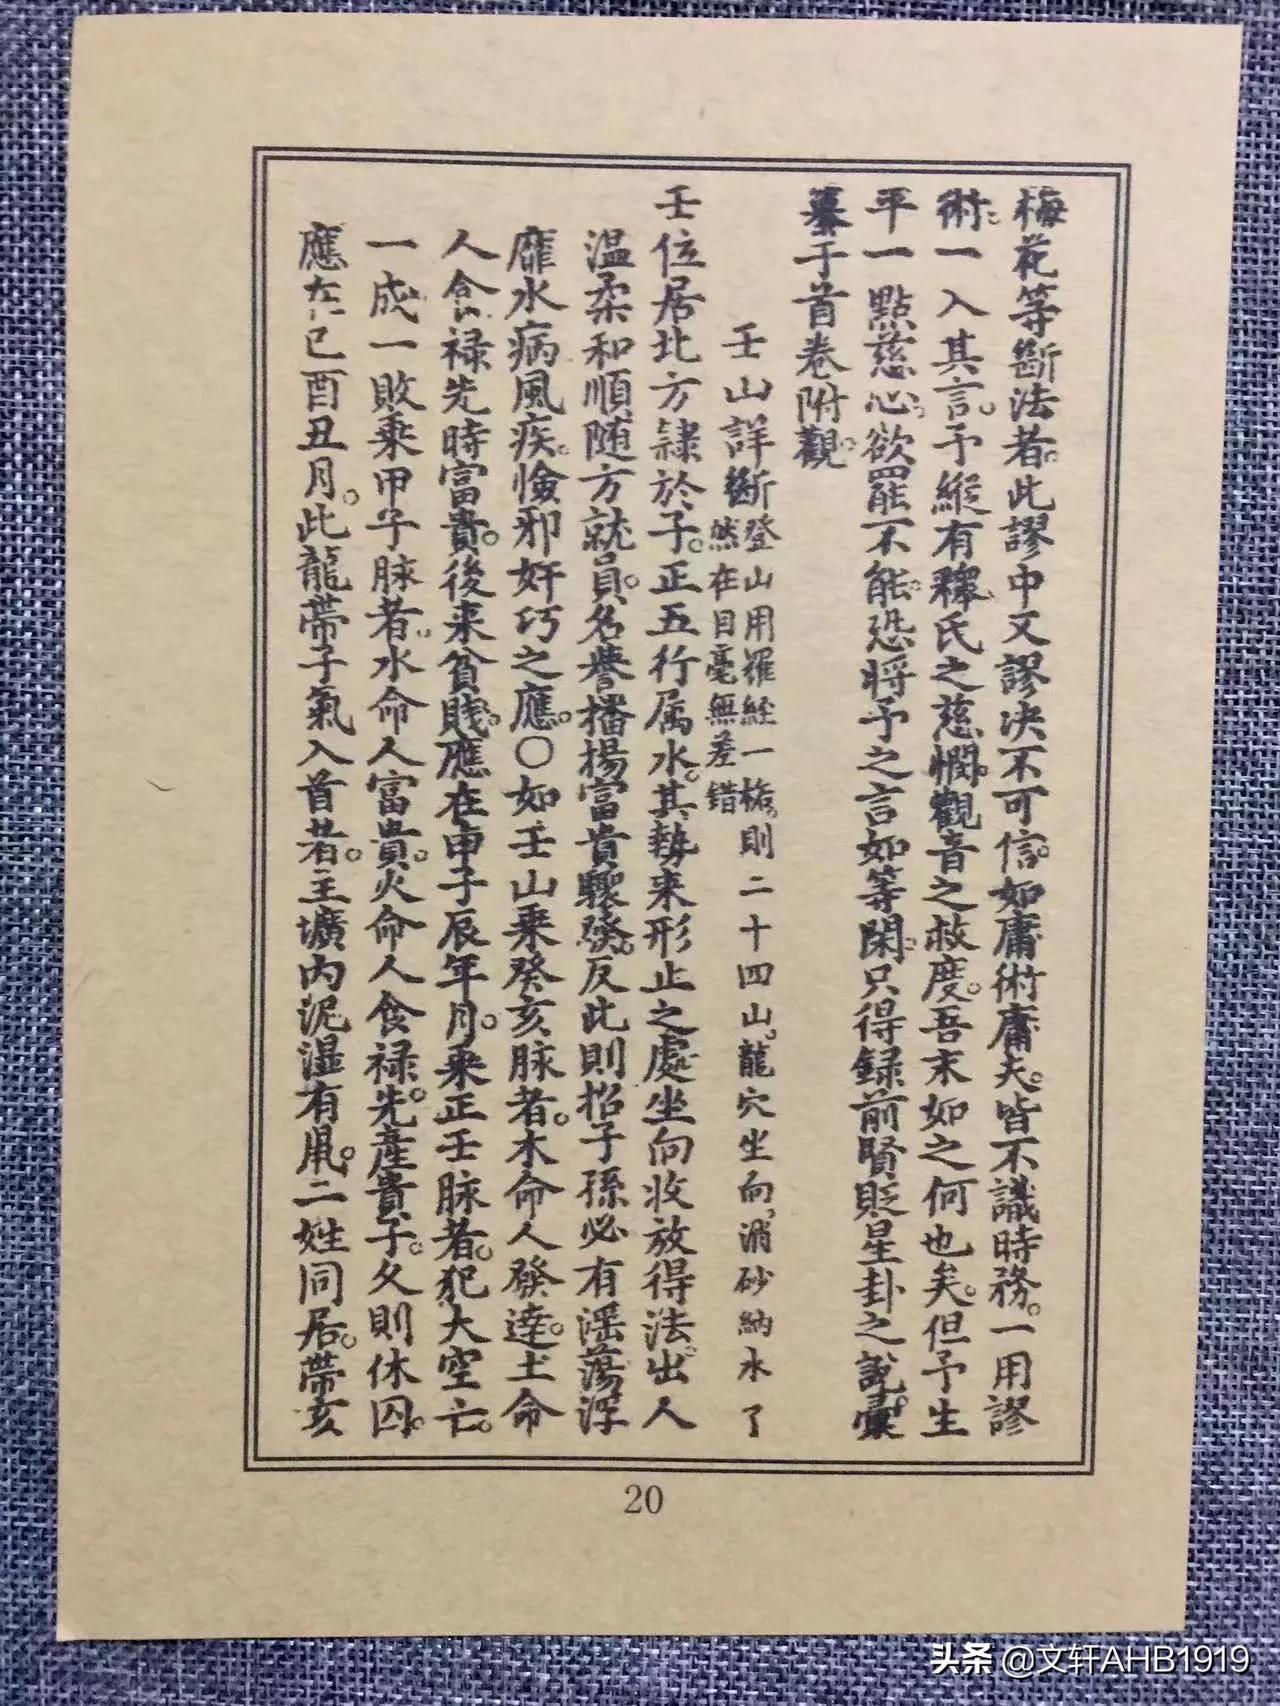 梅花等斷法者。此謬中又謬決不可信。如庸術庸夫。皆不識時務。一用謬
術。一入其言。予縱有釋氏之慈憫。觀音之救度。吾末如之何也矣。但予生
平一點慈心。欲罷不能。恐將予之言如等閑。只得録前賢貶星卦之說。彙
纂于首卷附觀。
壬山詳斷
登山用羅經一格。則二十四山。龍穴坐向。消砂納水了
然在目毫無差錯
壬位居北方隷於子。正五行属水。其勢来形止之處坐向收放得法。出人
温柔和順。随方就員。名譽播揚富貴驟發。反此則招子孫必有滛蕩浮
靡水病風疾。憸邪奸巧之應。〇如壬山乗癸亥脉者。木命人發達。土命
人食禄先時富貴。後来貧賤。應在申子辰年月。乗正壬脉者。犯大空亡。
一成一敗乗甲子脉者。水命人富貴。火命人食禄。先產貴子。久則休囚。
應在巳酉丑月。此龍帶子氣入首者。主壙内泥濕有鼠。二姓同居。帶亥
20
头条 @文轩AHB1919